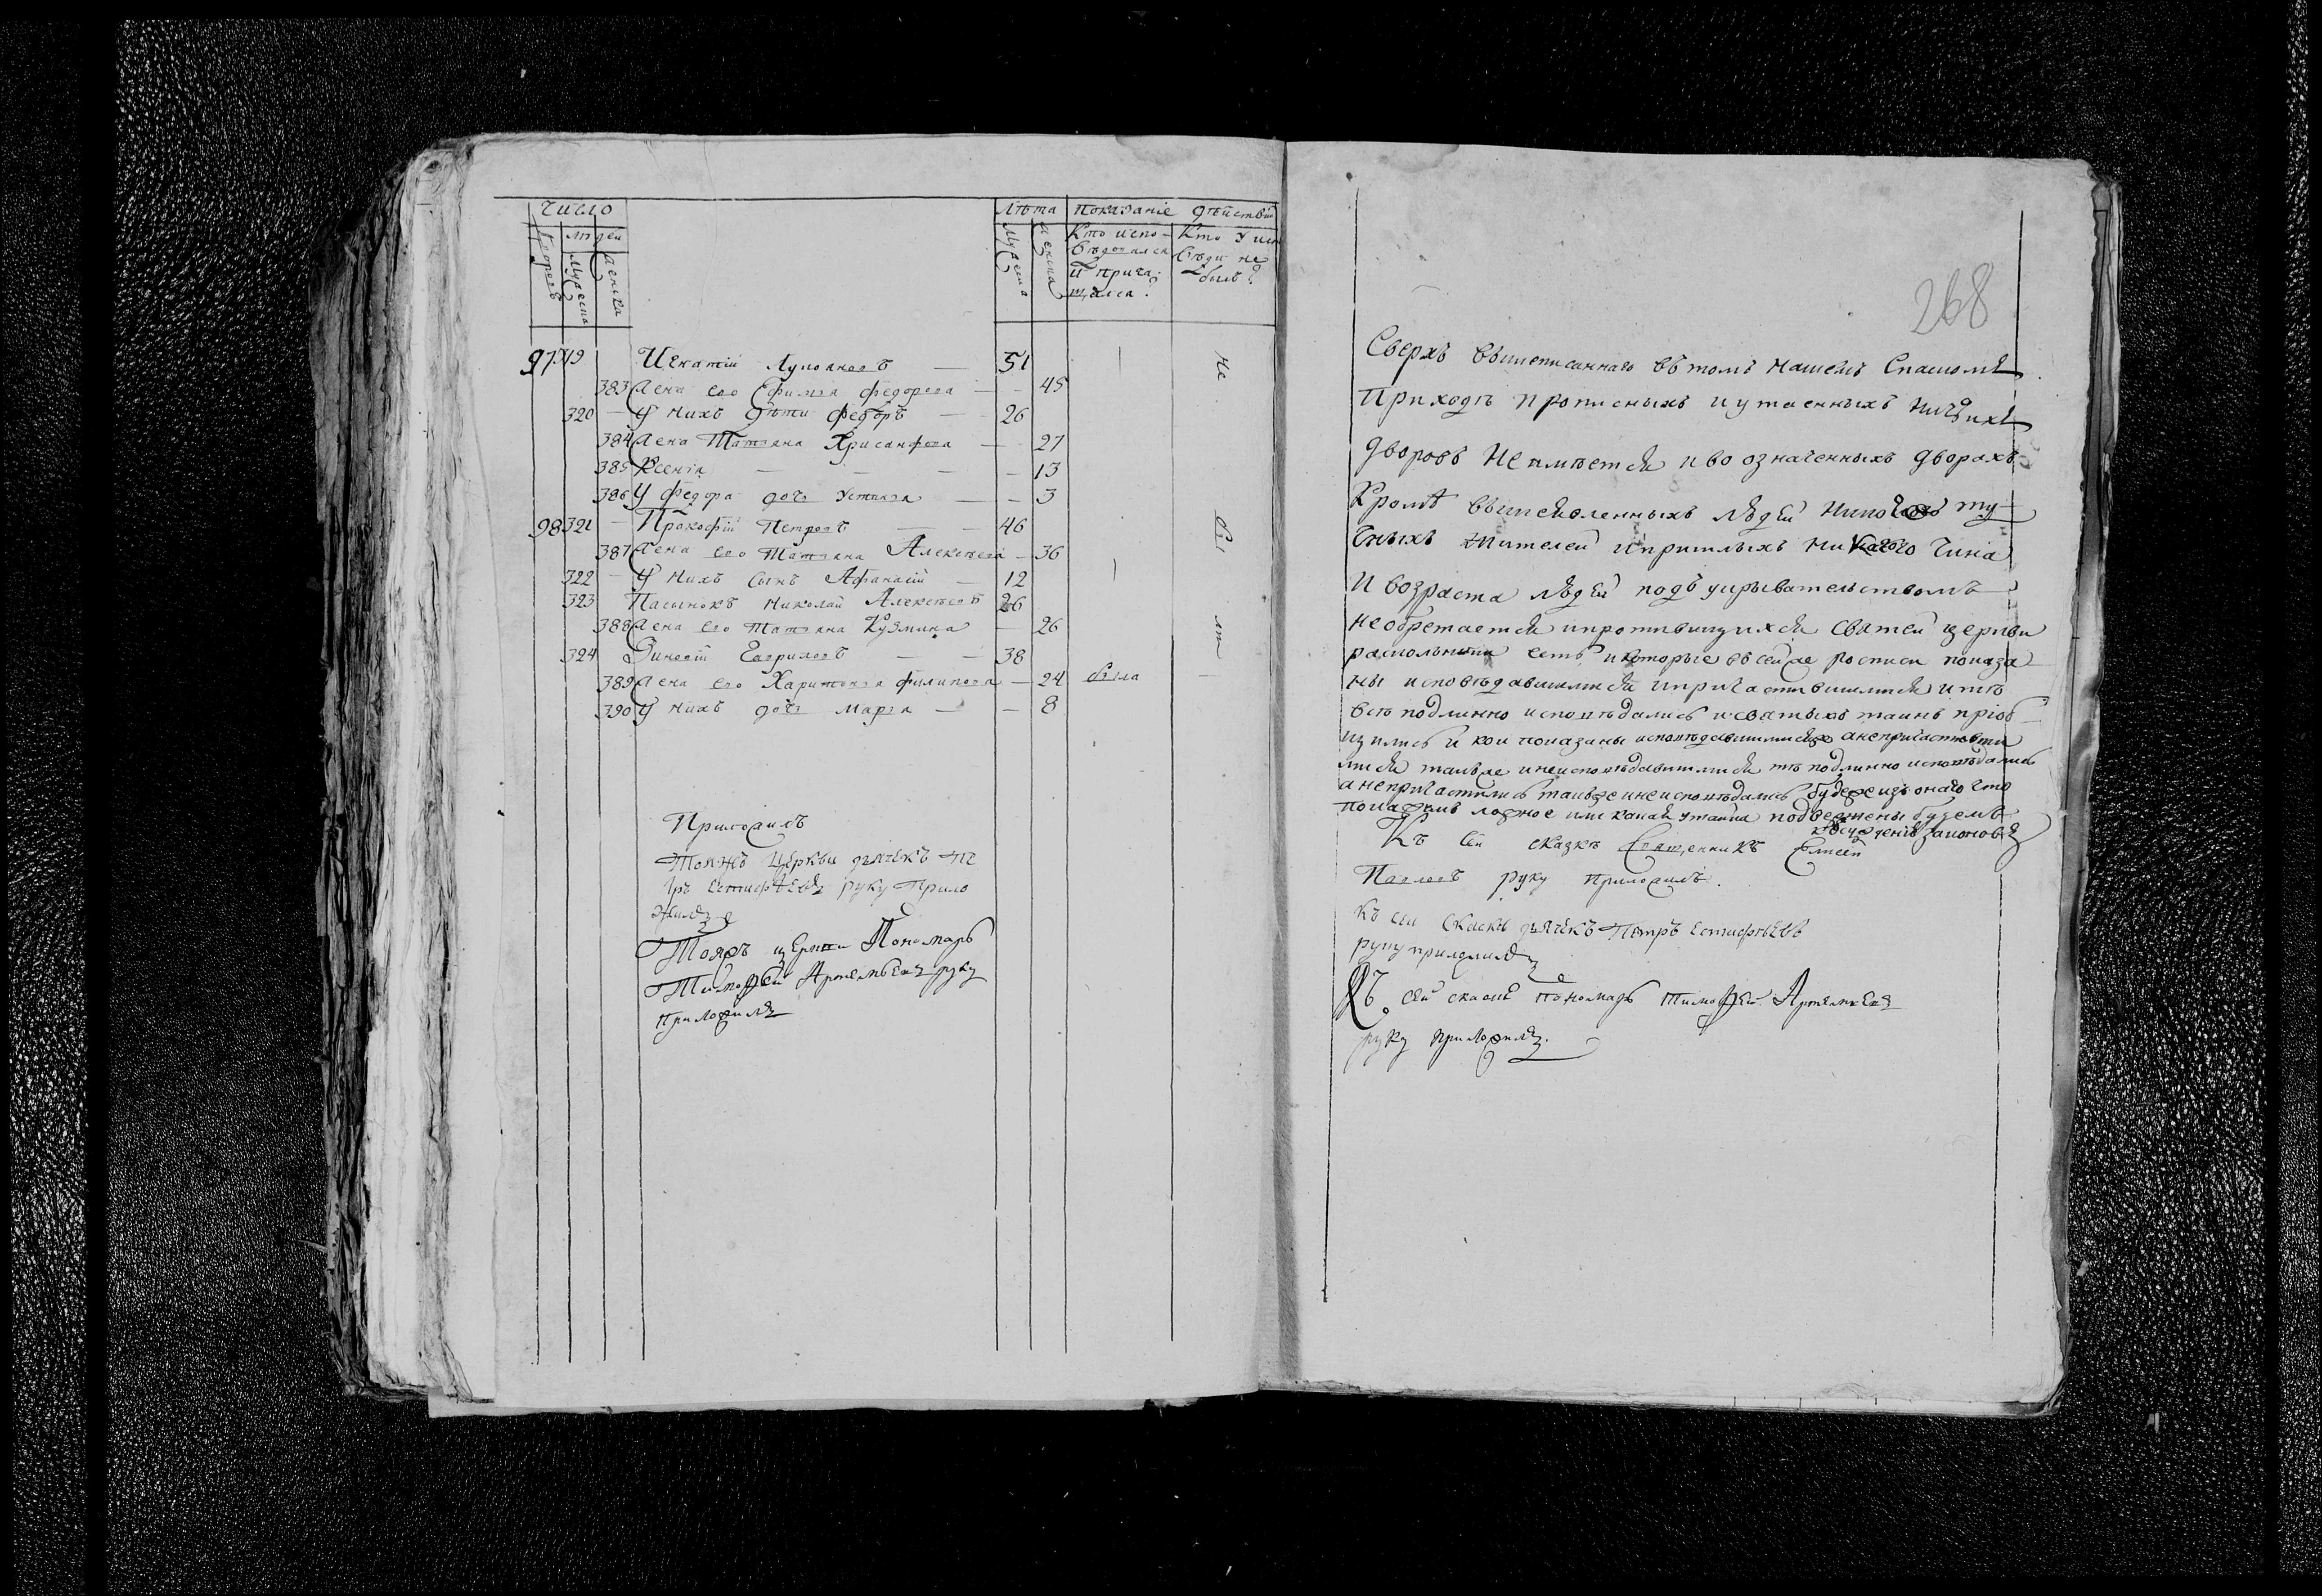 Число
Лѣта Показаніе дѣйствія
людей
Дворовъ
Мужеска
Женска
Мужеска
Женска
Кто испо-
вѣдолися
и прича-
щался?
Кто у исп
вѣди не
былъ?
97 319 Игнатій Лупоановъ — 51
383 Жена ево Ефимья федорова — 45
320 У нихъ дѣти федоръ — 26
384 Жена Татьяна Хрисанфова — 27
385 Ксенія — 13
386 У федора дочь Устинья — 3
98 321 Прокофій Петровъ — 46
387 Жена ево Татьяна Алексѣева — 36
322 У нихъ сынъ Афанасій — 12
323 Пасынокъ Николай Алексѣевъ 26
388 Жена ево Татьяна Кузмина — 26
324 Зиновій Гавриловъ — 38
389 Жена ево Харитонья филипова — 24 была
390 У нихъ дочь Марья — 8
Не
бы
ли
Приложилъ
Тояжъ Церкви дьячекъ Пе
тръ Естифѣевъ руку Прило
жилъ
Тояжъ церкви Пономарь
Тимофей Артемьевъ руку
приложилъ
268
Сверхъ вышеписаннаго въ томъ нашемъ Спаскомъ
Приходѣ прописныхъ и утаенныхъ ничьихъ
дворовъ не имѣется и во означенныхъ дворахъ
Кромѣ вышеявленныхъ людей никого ту-
тныхъ жителей и пришлыхъ никакого чина
и возраста людей подъ укрывательствомъ
не обретается и противящихся святей церкви
расколники есть и которые въ сей же росписи показа
ны исповѣдавшимися и причастившимися и тѣ
всѣ подлинно исповѣдались и святыхъ таинъ пріоб
щились и кои показаны исповѣдавшимися а непричастивши
мися также и неисповѣдавшимися тѣ подлинно исповѣдались
а непричастились также и неисповѣдались буде же изъ онаго что
показали ложное или какая утайка подвержены будемъ
къ осужденію законовъ
Къ сей сказкѣ Священникъ Елисей
Павловъ руку приложилъ.
Къ сей скаскѣ дьячекъ Петръ Естифѣевъ
руку приложилъ
Къ сей скаскѣ пономарь Тимофей Артемьевъ
руку приложилъ.